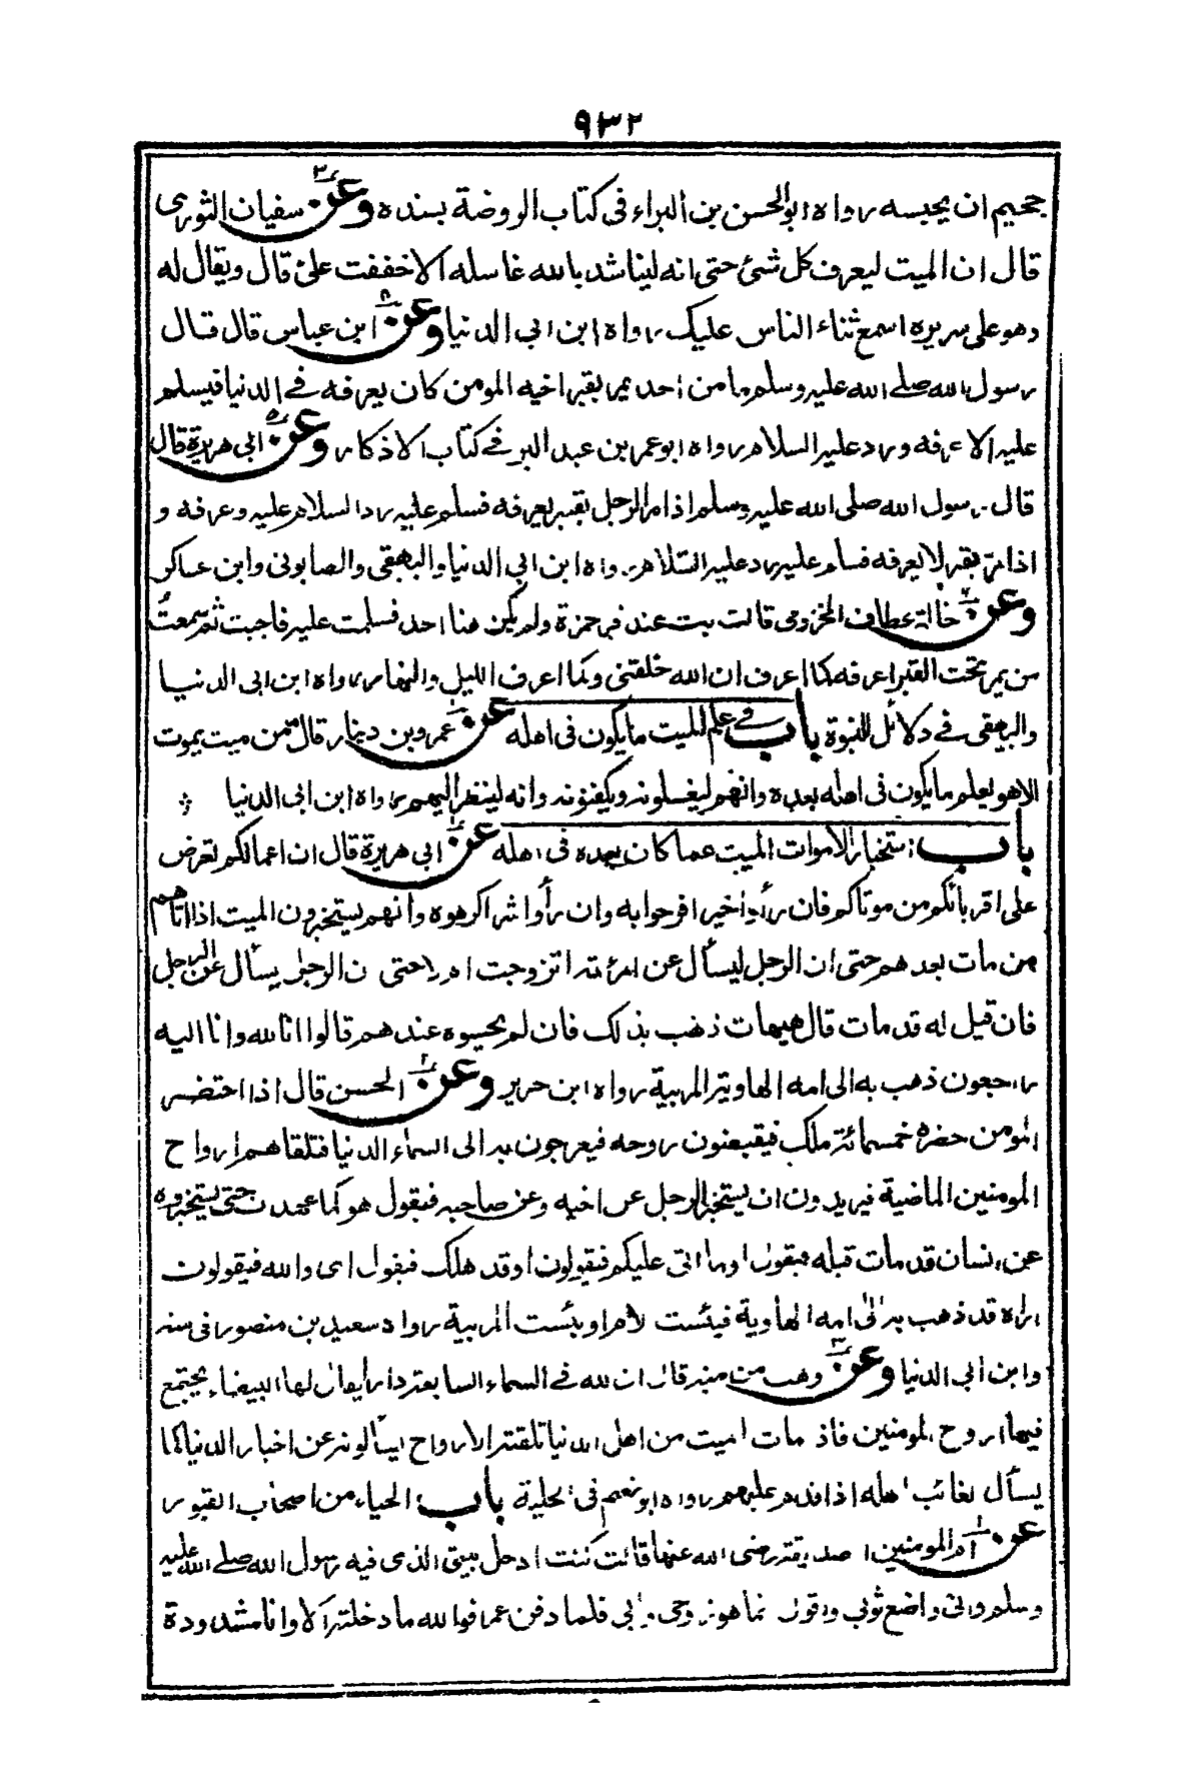 ٩٣٢
جحيم ان يحبسه رواه ابو الحسن بن البراء فى كتاب الروضة بسنده وعن٣ سفيان الثورى
قال ان الميت ليعرف كل شئ حتى انه ليناشد بالله غاسله الا خففت علىّ قال ويقال له
وهو على سريره اسمع ثناء الناس عليك رواه ابن ابى الدنيا وعن ابن عباس قال قال
رسول الله صلى الله عليه وسلم ما من احد يمر بقبر اخيه المومن كان يعرفه فى الدنيا فيسلم
عليه الا عرفه ورد عليه السلام رواه ابو عمر بن عبد البر فى كتاب الاذكار وعن٥ ابى هريرة قال
قال رسول الله صلى الله عليه وسلم اذا مر الرجل بقبر يعرفه فسلم عليه رد السلام عليه وعرفه و
اذا مرّ بقبر لا يعرفه فسلم عليه رد عليه السّلام رواه ابن ابى الدنيا والبيهقى والصابونى وابن عساكر
وعن خالة عطاف المخزومى قالت بت عند قبر حمزة ولم يكن هنا احد فسلمت عليه فاجبت ثم سمعتُ
من يمر تحت القبر اعرفه كما اعرف ان الله خلقنى وكما اعرف الليل والنهار رواه ابن ابى الدنيا
والبيهقى فى دلائل النبوة باب فى علم الميت ما يكون فى اهله عن١ عمرو بن دينار قال ممن ميت يموت
الا هو يعلم ما يكون فى اهله بعده وانهم ليغسلونه ويكفنونه وانه لينظر اليهم رواه ابن ابى الدنيا
باب استخبار الاموات الميت عما كان بعده فى اهله عن١ ابى هريرة قال ان اعمالكم تعرض
على اقربائكم من موتاكم فان رأوا خيرا فرحوا به وان رأوا شرا كرهوه وانهم يستخبرون الميت اذا اتاهم
من مات بعدهم حتى ان الرجل ليسأل عن امرئته اتزوجت ام لا حتى ن الرجل يسأل عن الرجل
فان قيل له قد مات قال هيهات ذهب بذلك فان لم يحسوه عندهم قالوا انا لله وانا اليه
راجعون ذهب به الى امه الهاوية المربية رواه ابن جرير وعن٢ الحسن قال اذا احتضر
المومن حضره خمسمائة ملك فيقبضون روحه فيعرجون به الى السماء الدنيا فتلقاهم ارواح
المومنين الماضية فيريدون ان يستخبر الرجل عن اخيه وعن صاحبه فيقول هو كما عهدت حتى يستخبروه
عن انسان قد مات قبله فيقول اوما اتى عليكم فيقولون اوقد هلك فيقول اى والله فيقولون
اراه قد ذهب به الى امه الهاوية فبئست الام وبئست المربية رواه سعيد بن منصور فى سننه
وابن ابى الدنيا وعن٣ وهب من منبه قال ان لله فى السماء السابعة دارا يقال لها البيضاء يجتمع
فيها ارواح المومنين فاذ مات الميت من اهل الدنيا تلقته الارواح يسألونه عن اخبار الدنيا كما
يسأل الغائب اهله اذا قدم عليهم رواه ابو نعيم فى الحلية باب الحياء من اصحاب القبور
عن١ ام المومنين الصديقة رضى الله عنها قالت كنت ادخل بيتى الذى فيه رسول الله صلى الله عليه
وسلم وانى واضع ثوبى واقول انما هو زوجى وابى فلما دفن عمر فوالله ما دخلته الا وانا مشدودة